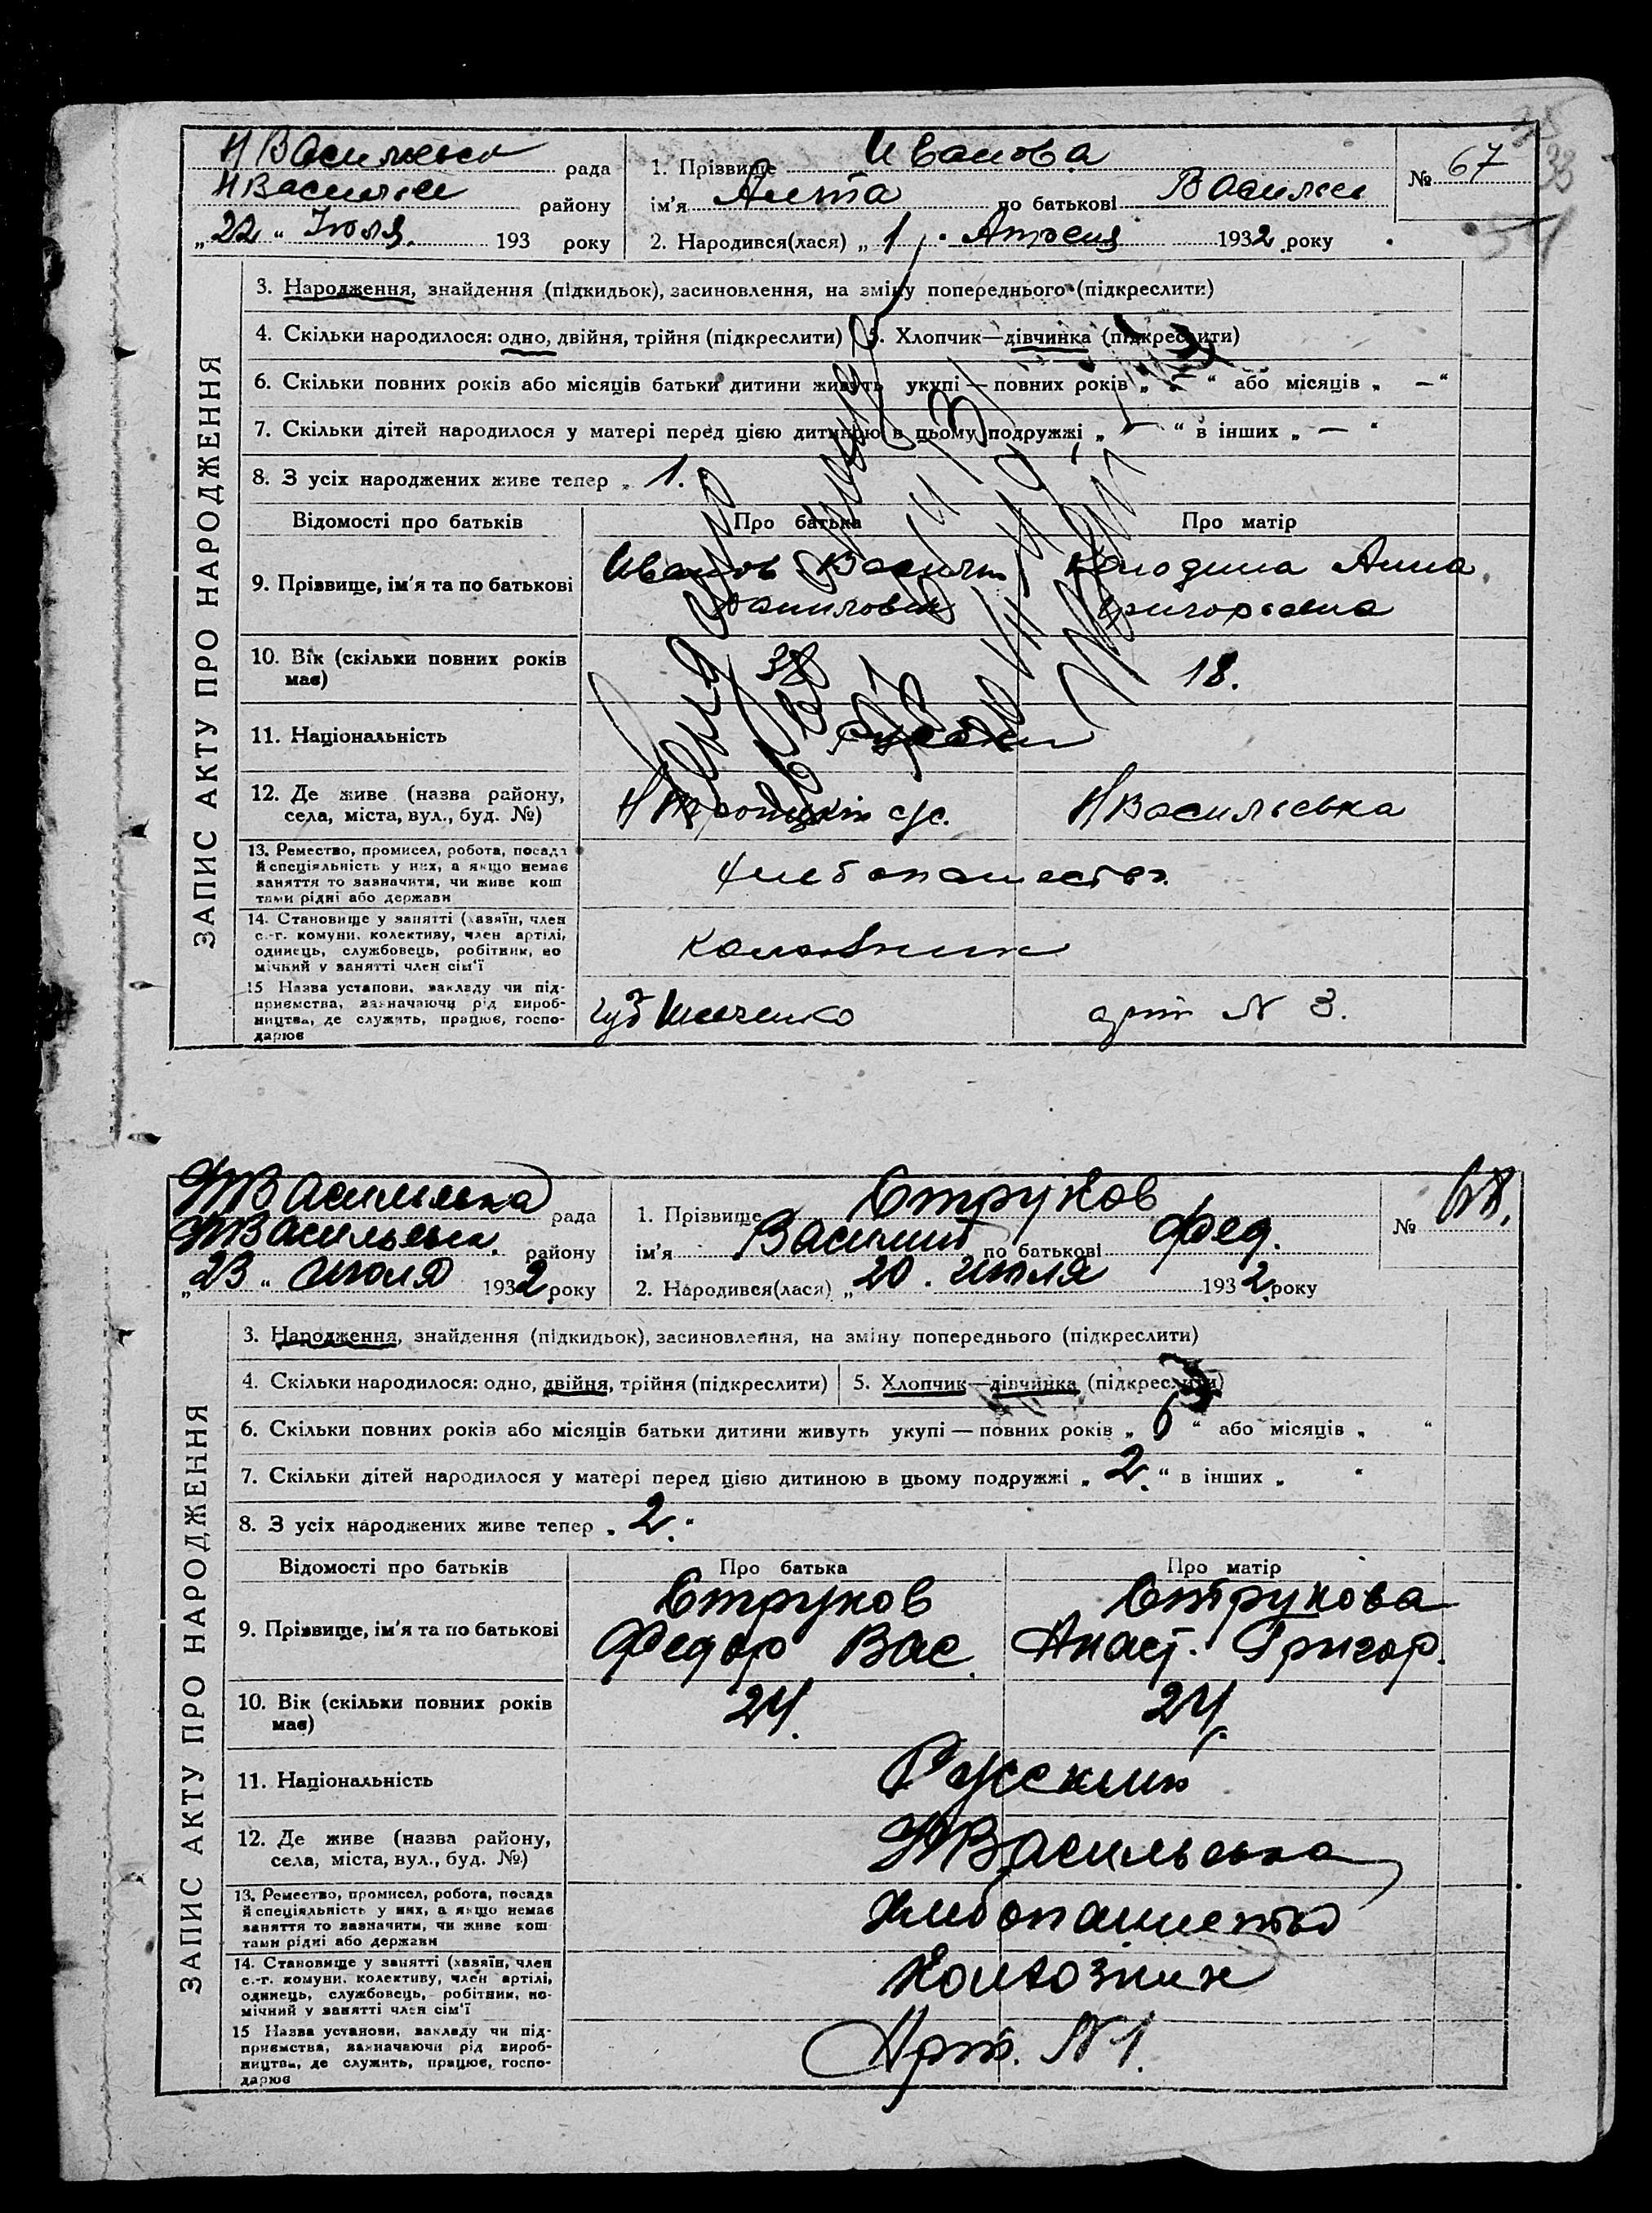 Н Васильевск рада
Н Васильев району
„22" Июля. 193 року
1. Прізвище Иванова
ім'я Анета по батькові Васильев
2. Народився(лася) „1. Апреля 1932 року
№ 67
38
ЗАПИС АКТУ ПРО НАРОДЖЕННЯ
3. Народження, знайдення (підкидьок), засиновлення, на зміну попереднього (підкреслити)
4. Скільки народилося: одно, двійня, трійня (підкреслити) 5. Хлопчик—дівчинка (підкреслити)
6. Скільки повних років або місяців батьки дитини живуть укупі — повних років „ — " або місяців „ — "
7. Скільки дітей народилося у матері перед цією дитиною в цьому подружжі „ — " в інших „ — "
8. З усіх народжених живе тепер „ 1.
Відомості про батьків Про батька Про матір
9. Прізвище, ім'я та по батькові
Иванов Василий Анна
Данилович Григорьевна
10. Вік (скільки повних років
має)
38 18.
11. Національність
12. Де живе (назва району,
села, міста, вул., буд. №)
с/с. Н Васильевка
13. Ремество, промисел, робота, посада
й спеціяльність у них, а якщо немає
заняття то зазначити, чи живе кош
тами рідні або держави
хлебопашество
14. Становище у занятті (хазяїн, член
с.-г. комуни, колективу, член артілі,
одинець, службовець, робітник, по
мічний у занятті член сім'ї
15 Назва установи, закладу чи під-
приємства, зазначаючи рід вироб-
ництва, де служить, працює, госпо-
дарює
Шевченко арт N 3.
НВасильевка рада
НВасильевск. району
„23" июля 1932 року
1. Прізвище Струков
ім'я Василий по батькові Фед.
2. Народився(лася) „20. июля 1932 року
№ 68.
ЗАПИС АКТУ ПРО НАРОДЖЕННЯ
3. Народження, знайдення (підкидьок), засиновлення, на зміну попереднього (підкреслити)
4. Скільки народилося: одно, двійня, трійня (підкреслити) 5. Хлопчик—дівчинка (підкреслити)
6. Скільки повних років або місяців батьки дитини живуть укупі — повних років „ 6 " або місяців „ "
7. Скільки дітей народилося у матері перед цією дитиною в цьому подружжі „ 2. " в інших „ "
8. З усіх народжених живе тепер „ 2. "
Відомості про батьків Про батька Про матір
9. Прізвище, ім'я та по батькові
Струков Струкова
Федор Вас. Анаст. Григор.
10. Вік (скільки повних років
має)
24. 24.
11. Національність Русский
12. Де живе (назва району,
села, міста, вул., буд. №)
НВасильевка
13. Ремество, промисел, робота, посада
й спеціяльність у них, а якщо немає
заняття то зазначити, чи живе кош
тами рідні або держави
Хлебопашество
14. Становище у занятті (хазяїн, член
с.-г. комуни, колективу, член артілі,
одинець, службовець, робітник, по-
мічний у занятті член сім'ї
Колхозник
15 Назва установи, закладу чи під-
приємства, зазначаючи рід вироб-
ництва, де служить, працює, госпо-
дарює
Арт. N 1.